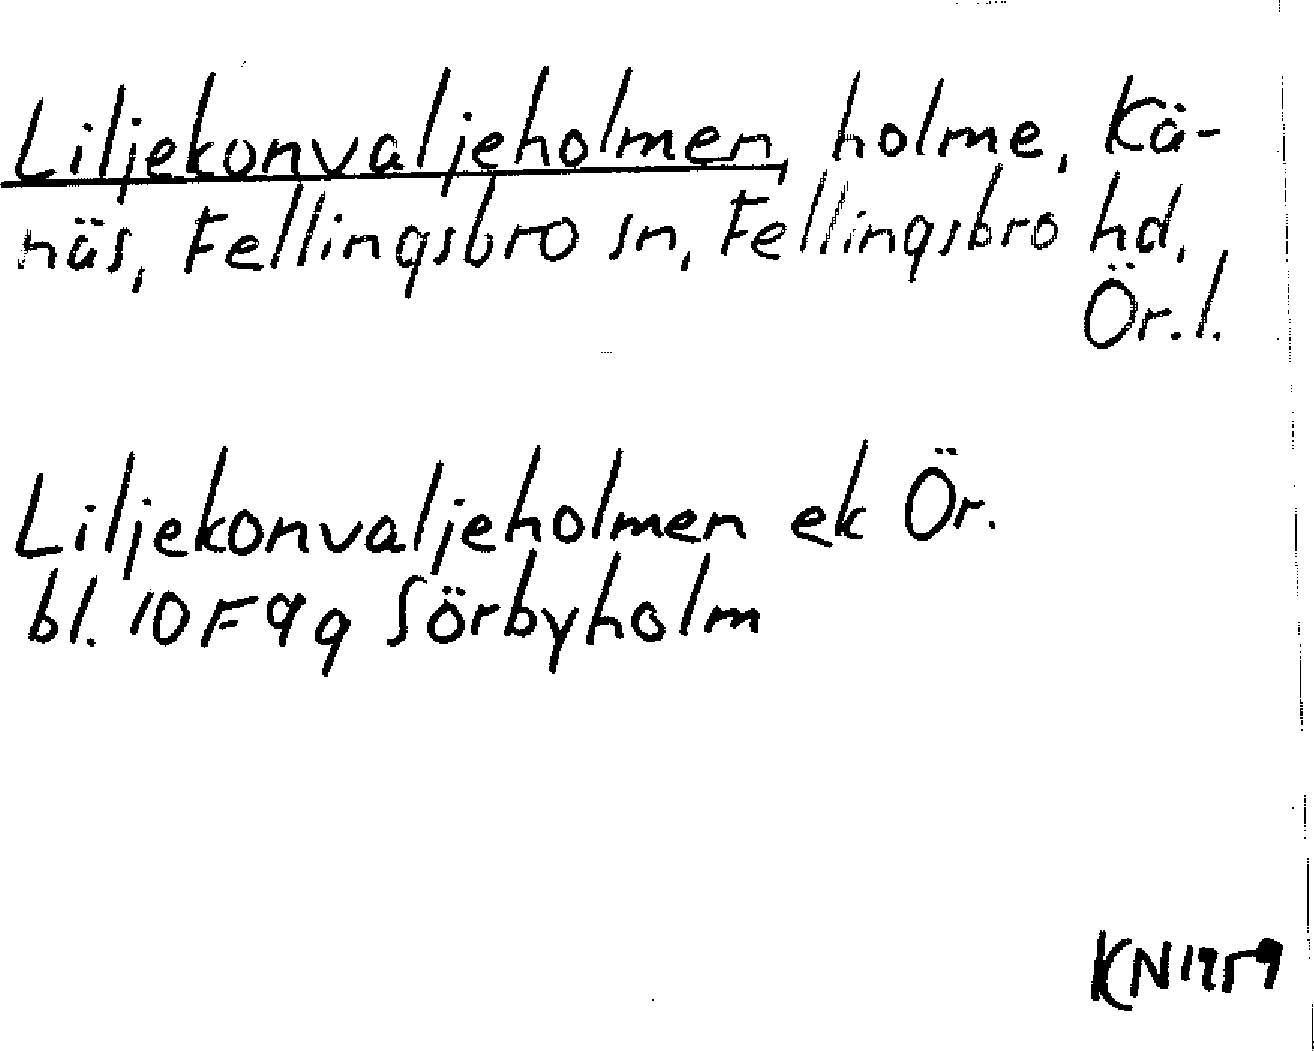 Liljekonvaljeholmen, holme, Kä-
näs, Fellingsbro sn, Fellingsbro hd,
Ör. l.
Liljekonvaljeholmen ek Ör.
bl. 10F9g Sörbyholm
KN1959